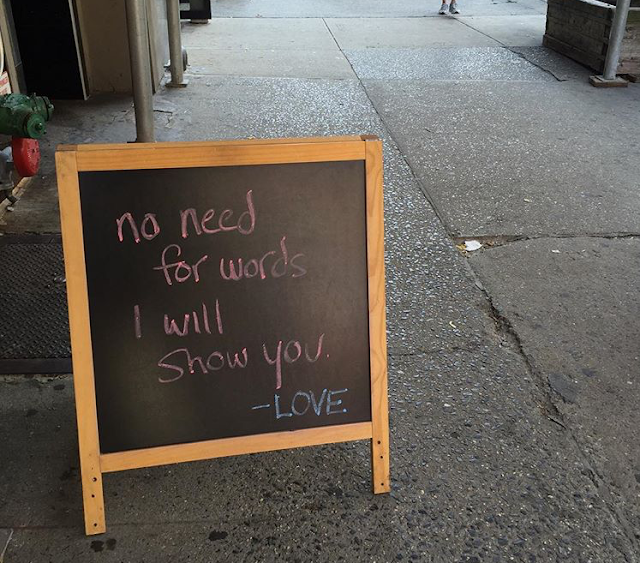 no need
for words
I will
show you.
-LOVE